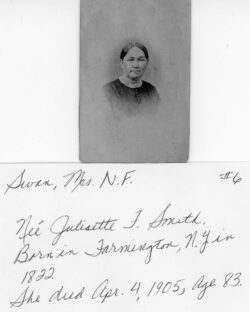 Swan, Mrs. N.F. #6
Neé Juliaette T. Smith.
Born in Farmington, N.Y in
1822.
She died Apr. 4, 1905, Age 83.